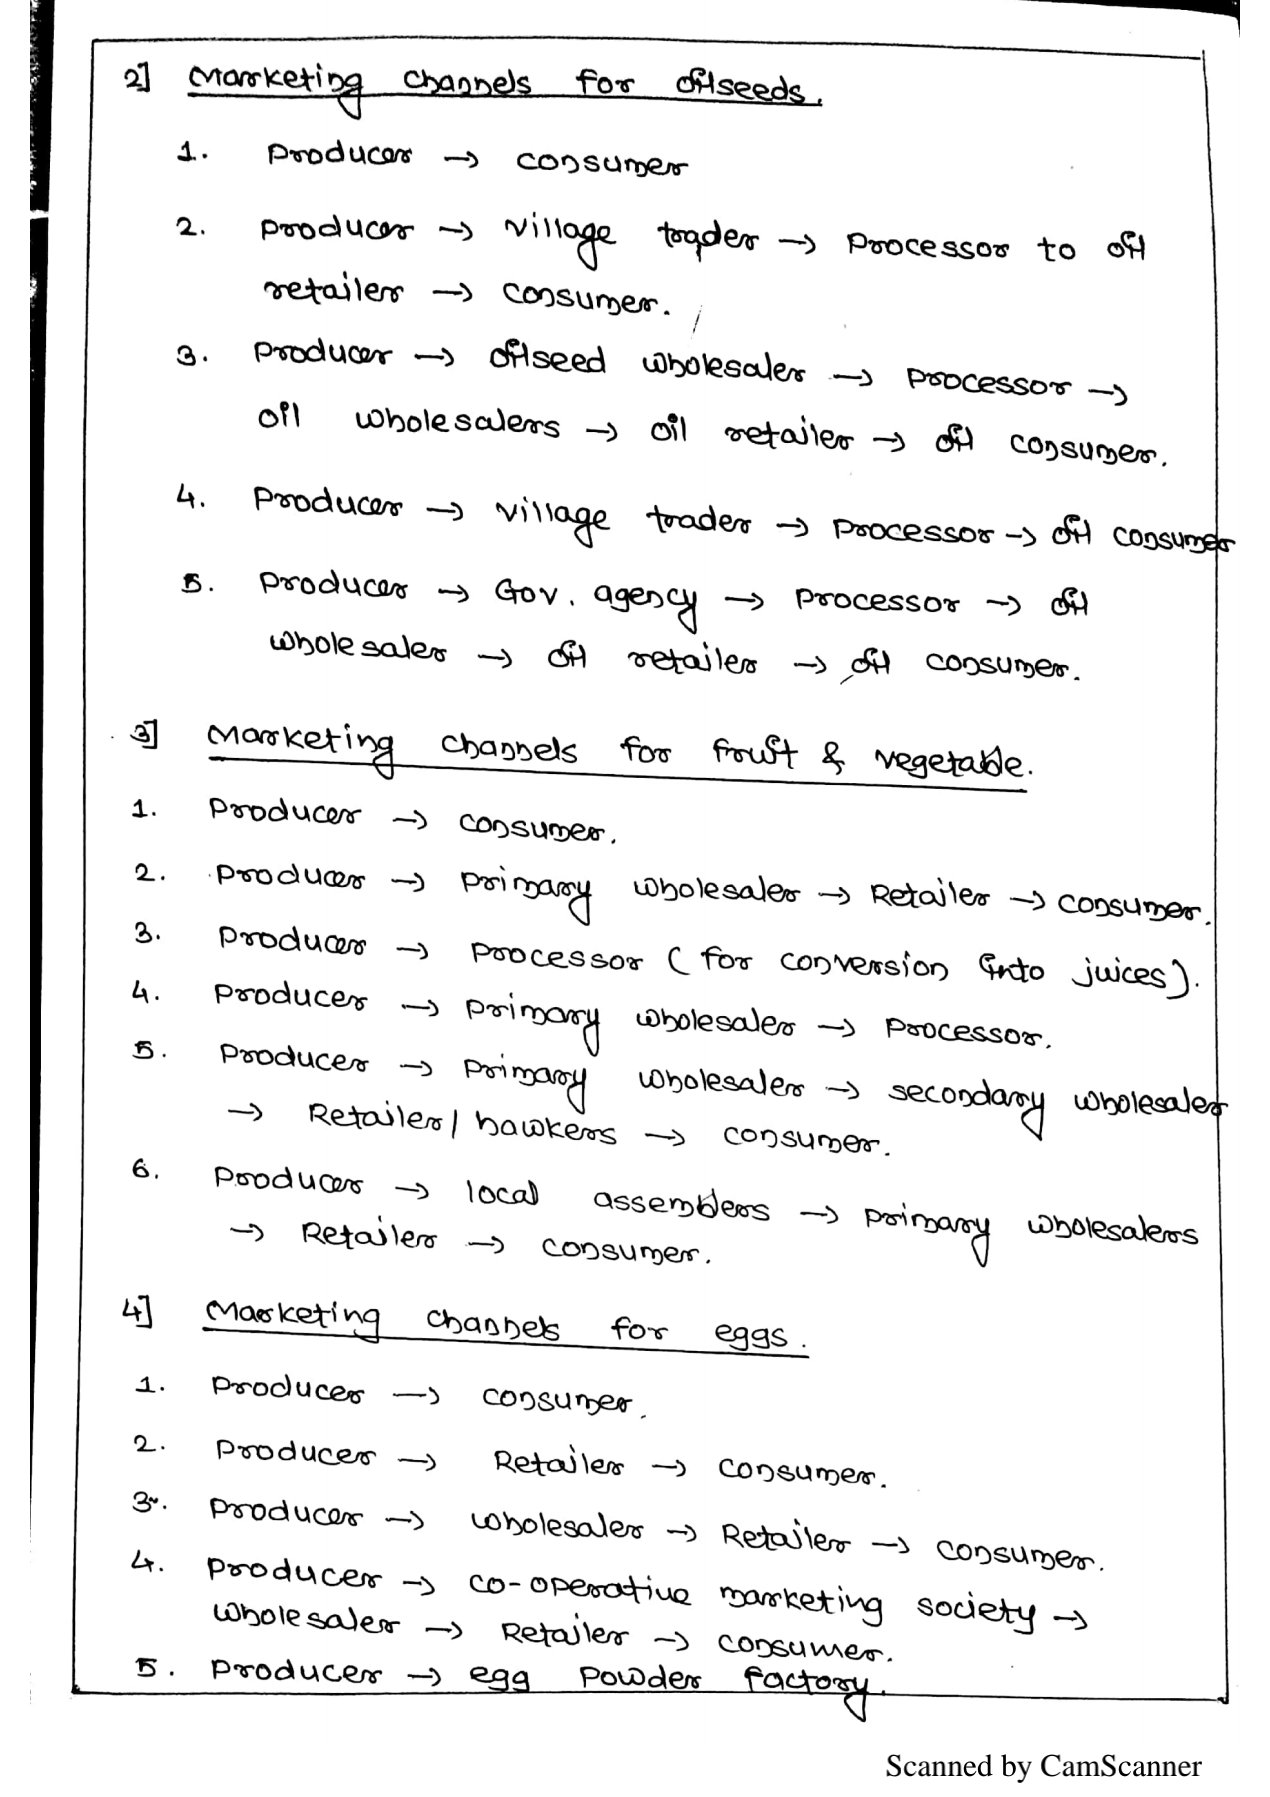 2] Marketing channels for oilseeds.
1. Producer → consumer
2. Producer → village trader → Processor to oil
retailer → consumer.
3. Producer → oilseed wholesaler → Processor →
oil wholesalers → oil retailer → oil consumer.
4. Producer → village trader → Processor → oil consumer
5. Producer → Gov. agency → Processor → oil
wholesaler → oil retailer → oil consumer.
3] Marketing channels for fruit & vegetable.
1. Producer → consumer.
2. Producer → primary wholesaler → Retailer → consumer.
3. Producer → Processor (for conversion into juices).
4. Producer → primary wholesaler → Processor.
5. Producer → primary wholesaler → secondary wholesaler
→ Retailer/hawkers → consumer.
6. Producer → local assemblers → primary wholesalers
→ Retailer → consumer.
4] Marketing channels for eggs.
1. Producer → consumer.
2. Producer → Retailer → consumer.
3. Producer → wholesaler → Retailer → consumer.
4. Producer → co-operative marketing society →
wholesaler → Retailer → consumer.
5. Producer → egg powder factory.
Scanned by CamScanner